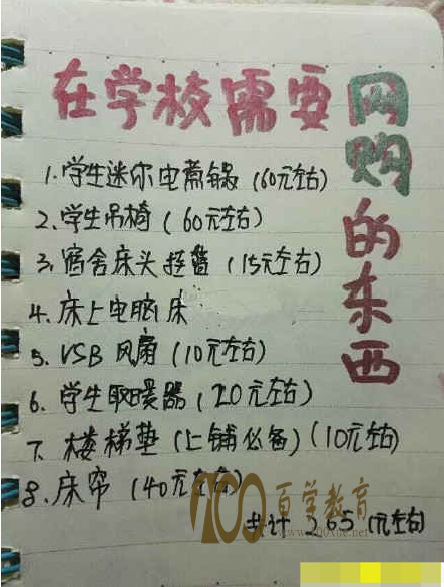 在学校需要网购的东西
1.学生迷你电煮锅（60元左右）
2.学生吊椅（60元左右）
3.宿舍床头挂篮（15元左右）
4.床上电脑床
5.USB风扇（10元左右）
6.学生取暖器（20元左右）
7.楼梯垫（上铺必备）（10元左右）
8.床帘（40元左右）
共计265（元左右）
100百学教育